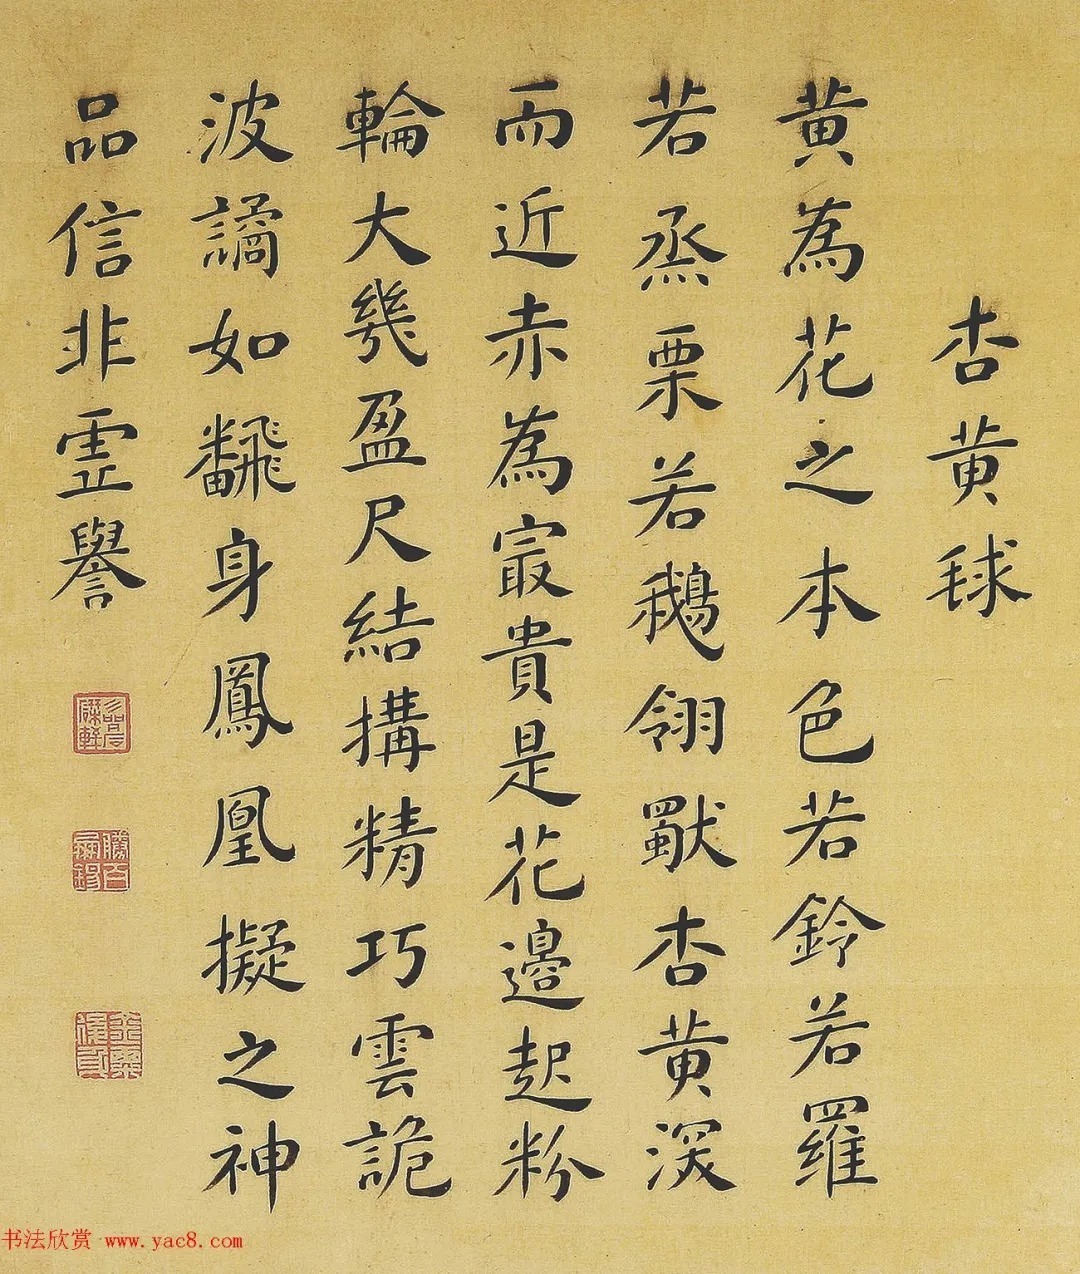 杏黄毬
黄為花之本色若鈴若羅
若烝栗若鵝翎獨杏黄深
而近赤為㝡貴是花邊起粉
輪大幾盈尺結搆精巧雲詭
波譎如飜身鳳凰擬之神
品信非虚譽
书法欣赏 www.yac8.com